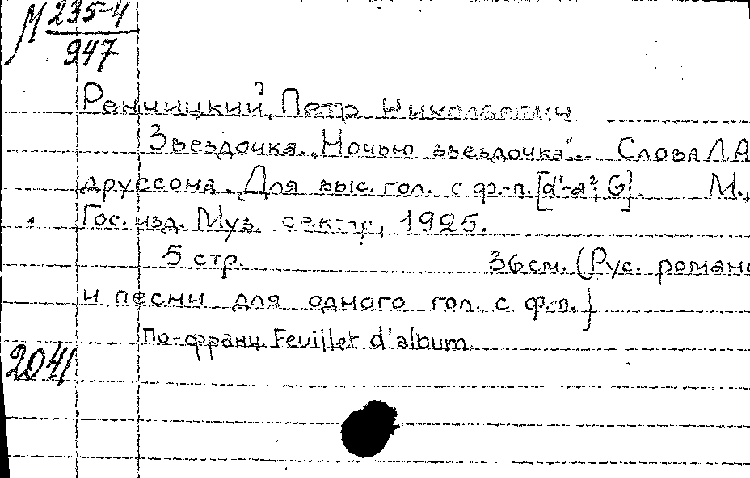 М 235-4
947
Ренчицкий, Петр Николаевич
Звездочка. „Ночью звездочка"... Слова Л А
друссона. Для выс. гол. с ф.-п. [d¹-a², G]. М.,
Гос. изд. Муз. сектор, 1925.
5 стр. 36 см. (Рус. романс
и песни для одного гол. с ф.-п.)
По-франц. Feuillet d'album.
2041